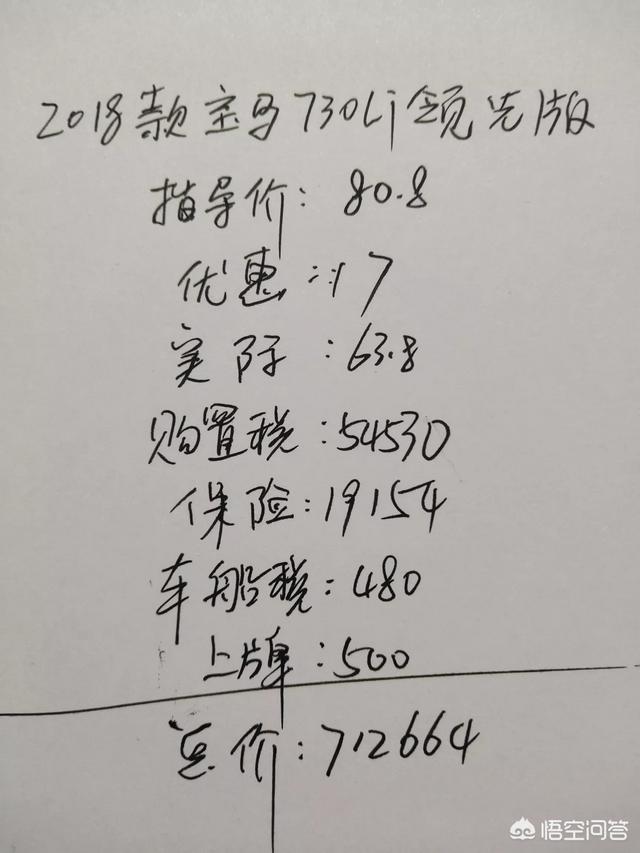 2018款宝马730Li领先版
指导价：80.8
优惠：17
实际：63.8
购置税：54530
保险：19154
车船税：480
上牌：500
总价：712664
悟空问答